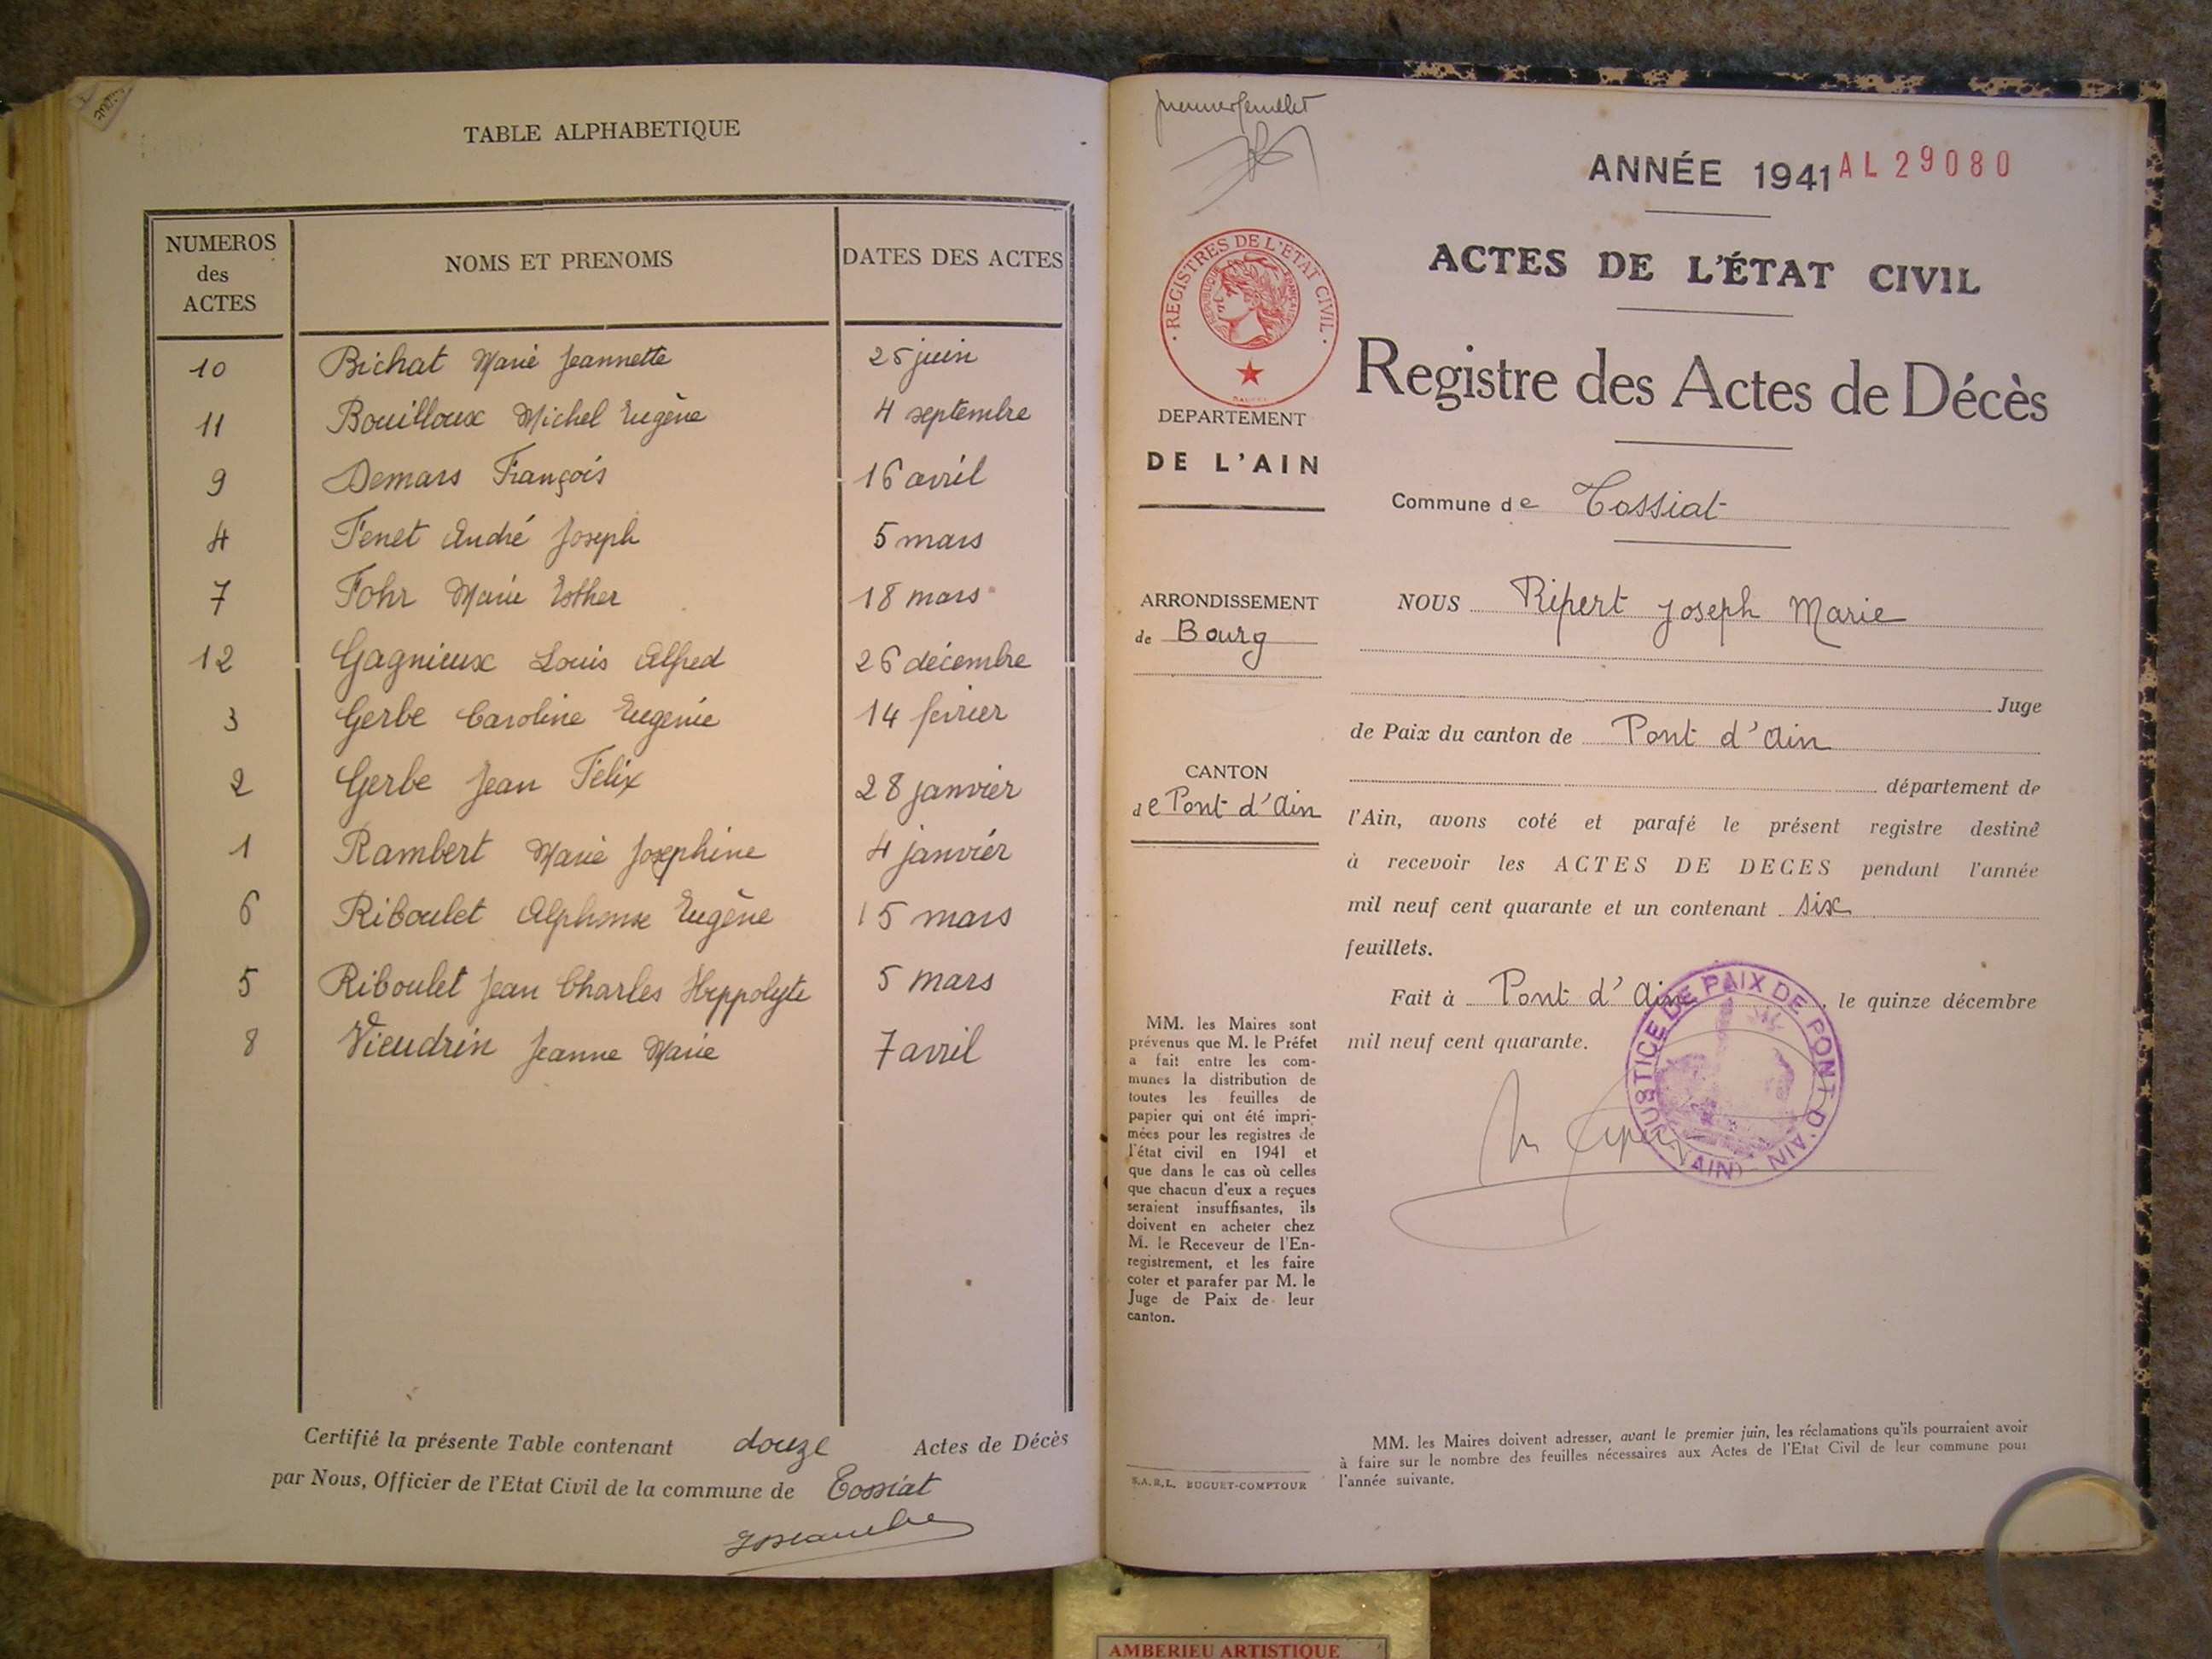 TABLE ALPHABETIQUE
NUMEROS des ACTES
NOMS ET PRENOMS
DATES DES ACTES
10 Bichat Marie Jeannette 25 juin
11 Bouilloux Michel Eugène 4 septembre
9 Demars François 16 avril
4 Fenet André Joseph 5 mars
7 Fohr Marie Esther 18 mars
12 Gagnieux Louis Alfred 26 décembre
3 Gerbe Caroline Eugenie 14 février
2 Gerbe Jean Félix 28 janvier
1 Rambert Marie Josephine 4 janvier
6 Riboulet Alphonse Eugène 15 mars
5 Riboulet Jean Charles Hyppolyte 5 mars
8 Vieudrin Jeanne Marie 7 avril
Certifié la présente Table contenant douze Actes de Décès
par Nous, Officier de l'Etat Civil de la commune de Tossiat
premier feuillet
REGISTRES DE L'ETAT CIVIL
REPUBLIQUE FRANÇAISE
DEPARTEMENT
DE L'AIN
ARRONDISSEMENT
de Bourg
CANTON
de Pont d'Ain
MM. les Maires sont
prévenus que M. le Préfet
a fait entre les com-
munes la distribution de
toutes les feuilles de
papier qui ont été impri-
mées pour les registres de
l'état civil en 1941 et
que dans le cas où celles
que chacun d'eux a reçues
seraient insuffisantes, ils
doivent en acheter chez
M. le Receveur de l'En-
registrement, et les faire
coter et parafer par M. le
Juge de Paix de leur
canton.
S.A.R.L. BUGUET-COMPTOUR
ANNÉE 1941 AL 29080
ACTES DE L'ÉTAT CIVIL
Registre des Actes de Décès
Commune de Tossiat
NOUS Ripert Joseph Marie
Juge
de Paix du canton de Pont d'Ain
département de
l'Ain, avons coté et parafé le présent registre destiné
à recevoir les ACTES DE DECES pendant l'année
mil neuf cent quarante et un contenant six
feuillets.
Fait à Pont d'Ain, le quinze décembre
mil neuf cent quarante.
JUSTICE DE PAIX DE PONT D'AIN (AIN)
MM. les Maires doivent adresser, avant le premier juin, les réclamations qu'ils pourraient avoir
à faire sur le nombre des feuilles nécessaires aux Actes de l'Etat Civil de leur commune pour
l'année suivante.
AMBERIEU ARTISTIQUE